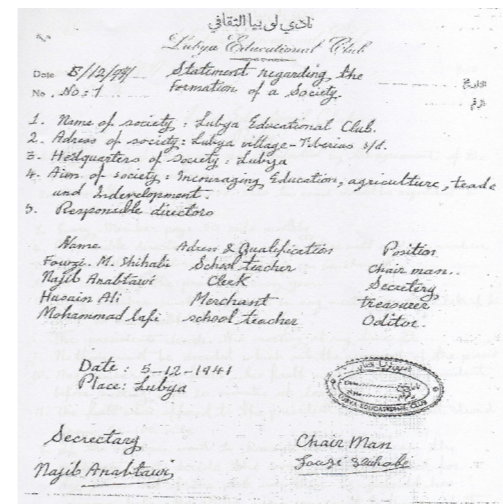 نادي لوبيا الثقافي
Lubya Educational Club
Date 5/12/941
Statement regarding the
No. No: 1
Formation of a Society.
التاريخ
الرقم
1. Name of society : Lubya Educational Club.
2. Adress of society : Lubya village - Tiberias s/d.
3. Hedquarters of Society : Lubiya
4. Aim of society : Incouraging Education, agriculture, trade
and Indevelopment.
5. Responsible directors
Name Adress & Qualification Position
Fowzi. M. Shihabi School teacher Chair man..
Najib Anabtawi Clerk Secretery
Husain Ali Merchant treasurer
Mohammad Lafi school teacher Oditor.
Date : 5-12-1941
Place : Lubya
LUBYA EDUCATIONAL CLUB
Secrectary
Chair Man
Najib Anabtawi
Fouzi Shihabi